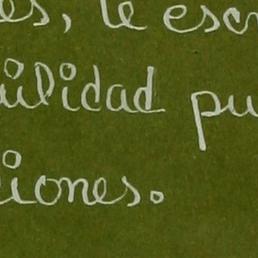 es, te escr
uilidad pu
iones.